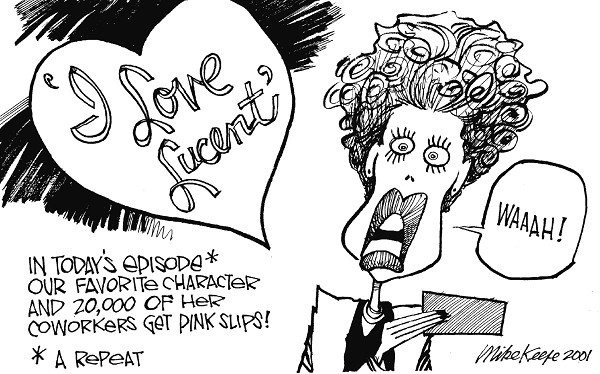 'I Love
Lucent'
IN TODAY'S EPISODE*
OUR FAVORITE CHARACTER
AND 20,000 OF HER
COWORKERS GET PINK SLIPS!
* A REPEAT
WAAAH!
Mike Keefe 2001